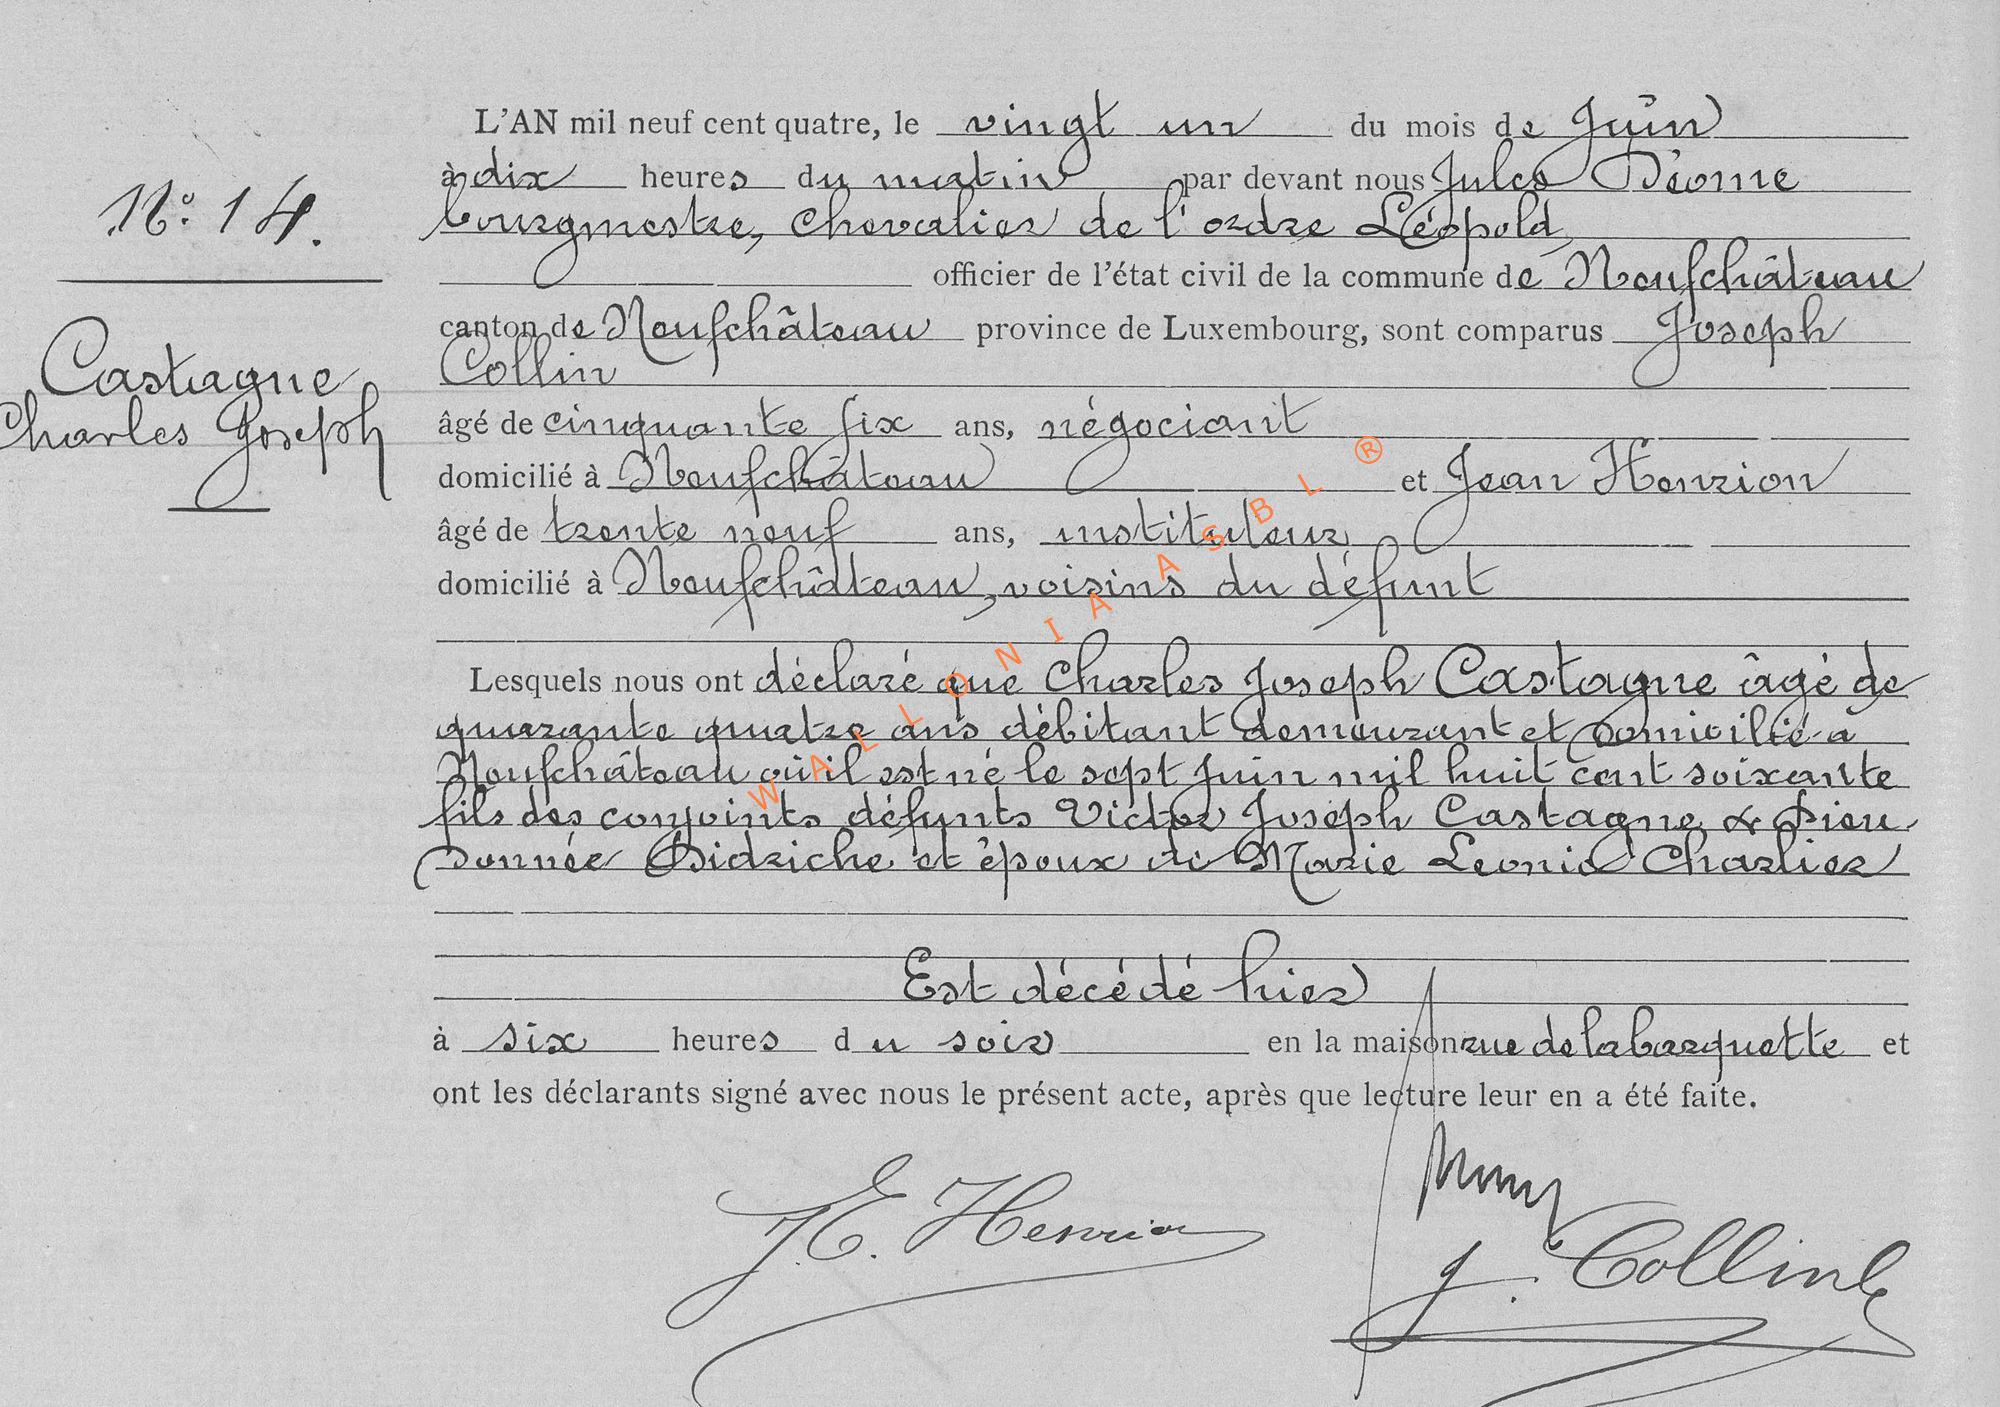 L'AN mil neuf cent quatre, le vingt un du mois de Juin
à dix heures du matin par devant nous Jules
N° 14.
bourgmestre, chevalier de l'ordre Léopold,
officier de l'état civil de la commune de Neufchâteau
canton de Neufchâteau province de Luxembourg, sont comparus Joseph
Collin
Castagne
Charles Joseph
âgé de cinquante six ans, négociant
domicilié à Neufchâteau et Jean Henrion
âgé de trente neuf ans, instituteur
domicilié à Neufchâteau, voisins du défunt
Lesquels nous ont déclaré que Charles Joseph Castagne âgé de
quarante quatre ans débitant demeurant et domicilié à
Neufchâteau où il est né le sept Juin mil huit cent soixante
fils des conjoints défunts Victor Joseph Castagne & Dieu
donnée Didriche et époux de Marie Leonie Charlier
Est décédé hier
à six heures du soir en la maison rue de la barquette et
ont les déclarants signé avec nous le présent acte, après que lecture leur en a été faite.
J.E. Henrion
J. Collin
WALLONIA ASBL ®